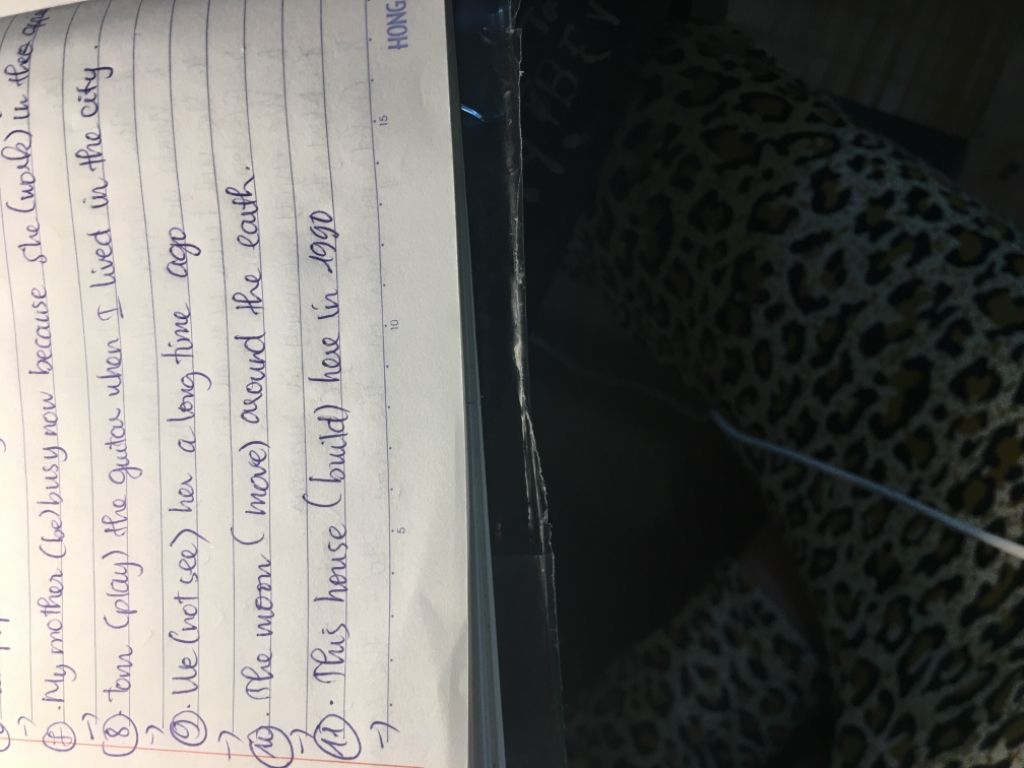 ->
(7). My mother (be) busy now because she (work) in the
->
(8). Tom (play) the guitar when I lived in the city.
->
(9). We (not see) her a long time ago
->
(10). The moon (move) around the earth.
->
(11). This house (build) here in 1990
->
5 10 15
HONG